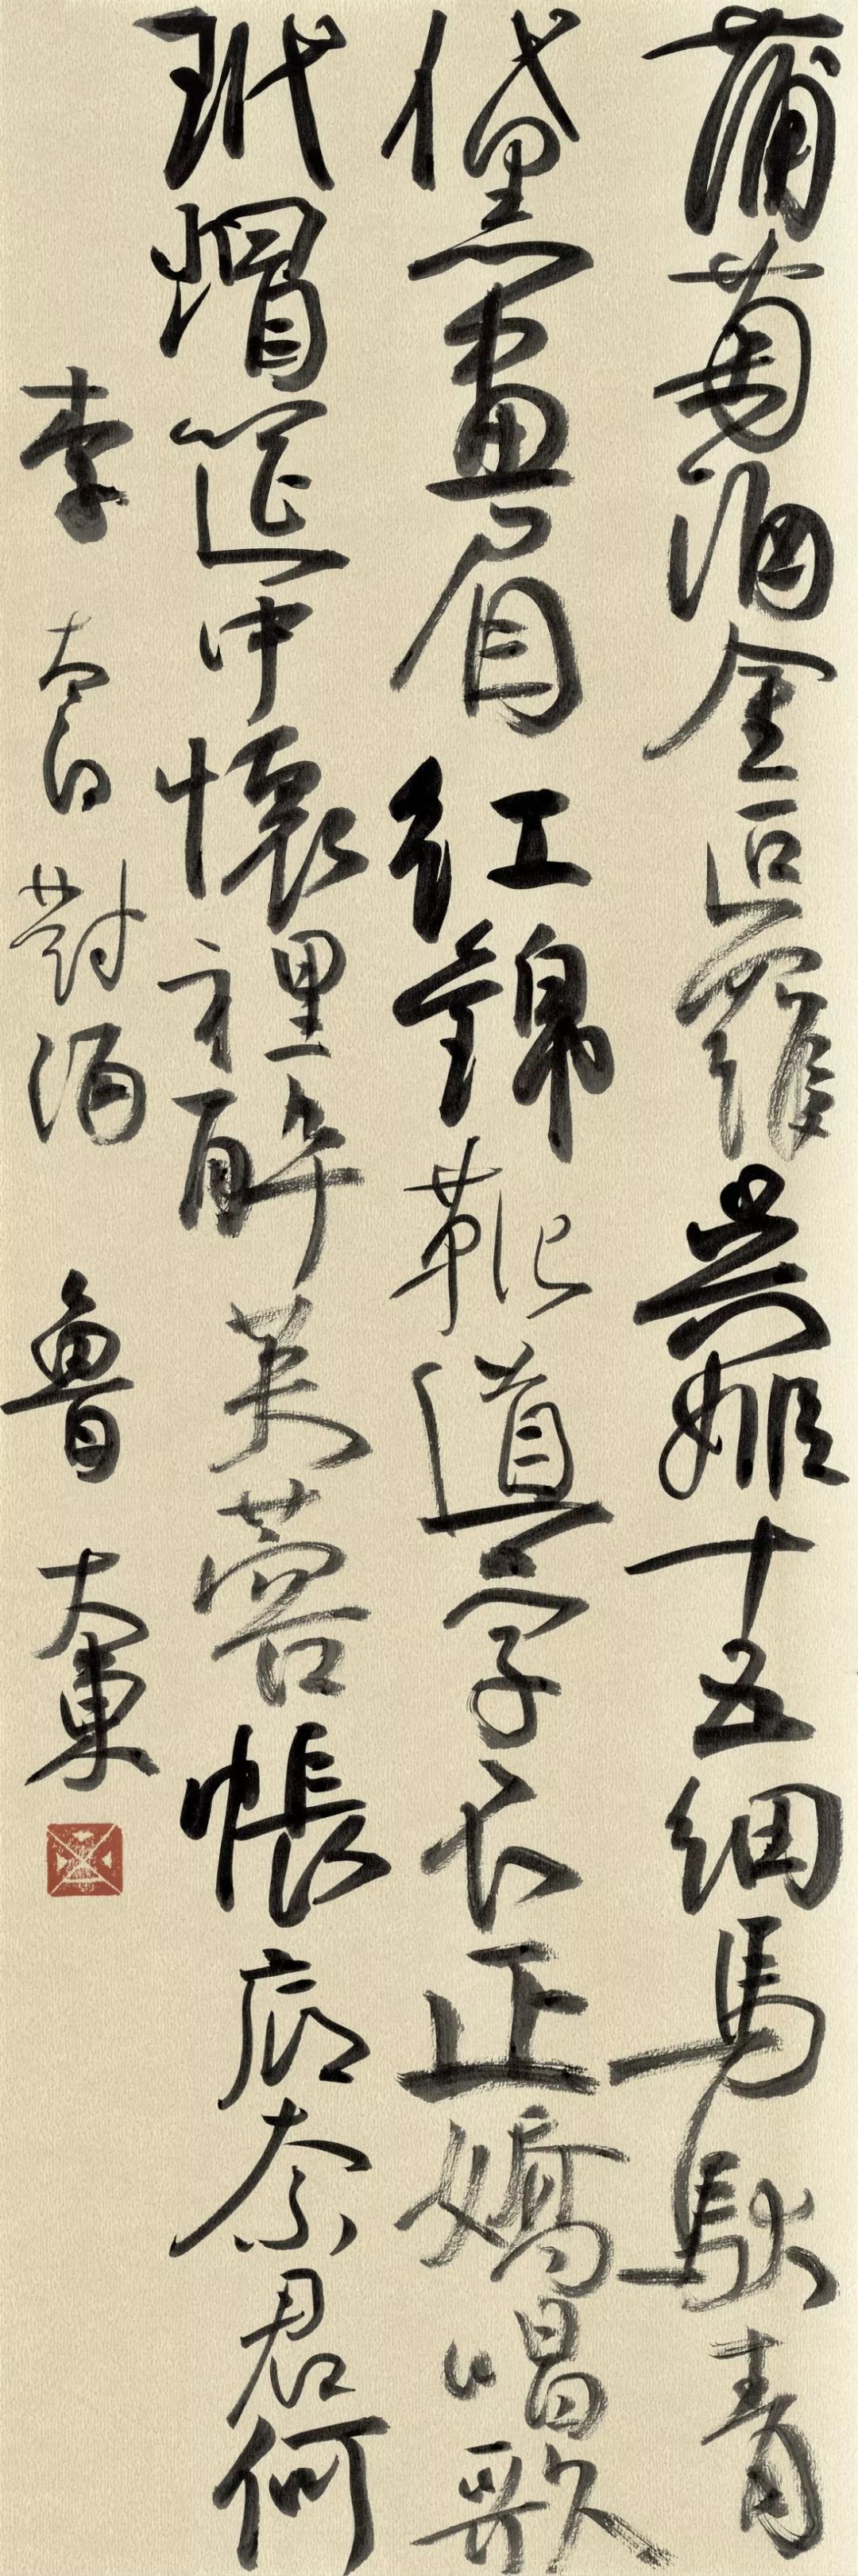 蒲萄酒金叵羅吳姬十五細馬馱青
黛畫眉紅錦靴道字不正嬌唱歌
玳瑁筵中懷裡醉芙蓉帳底奈君何
李太白對酒 魯大東